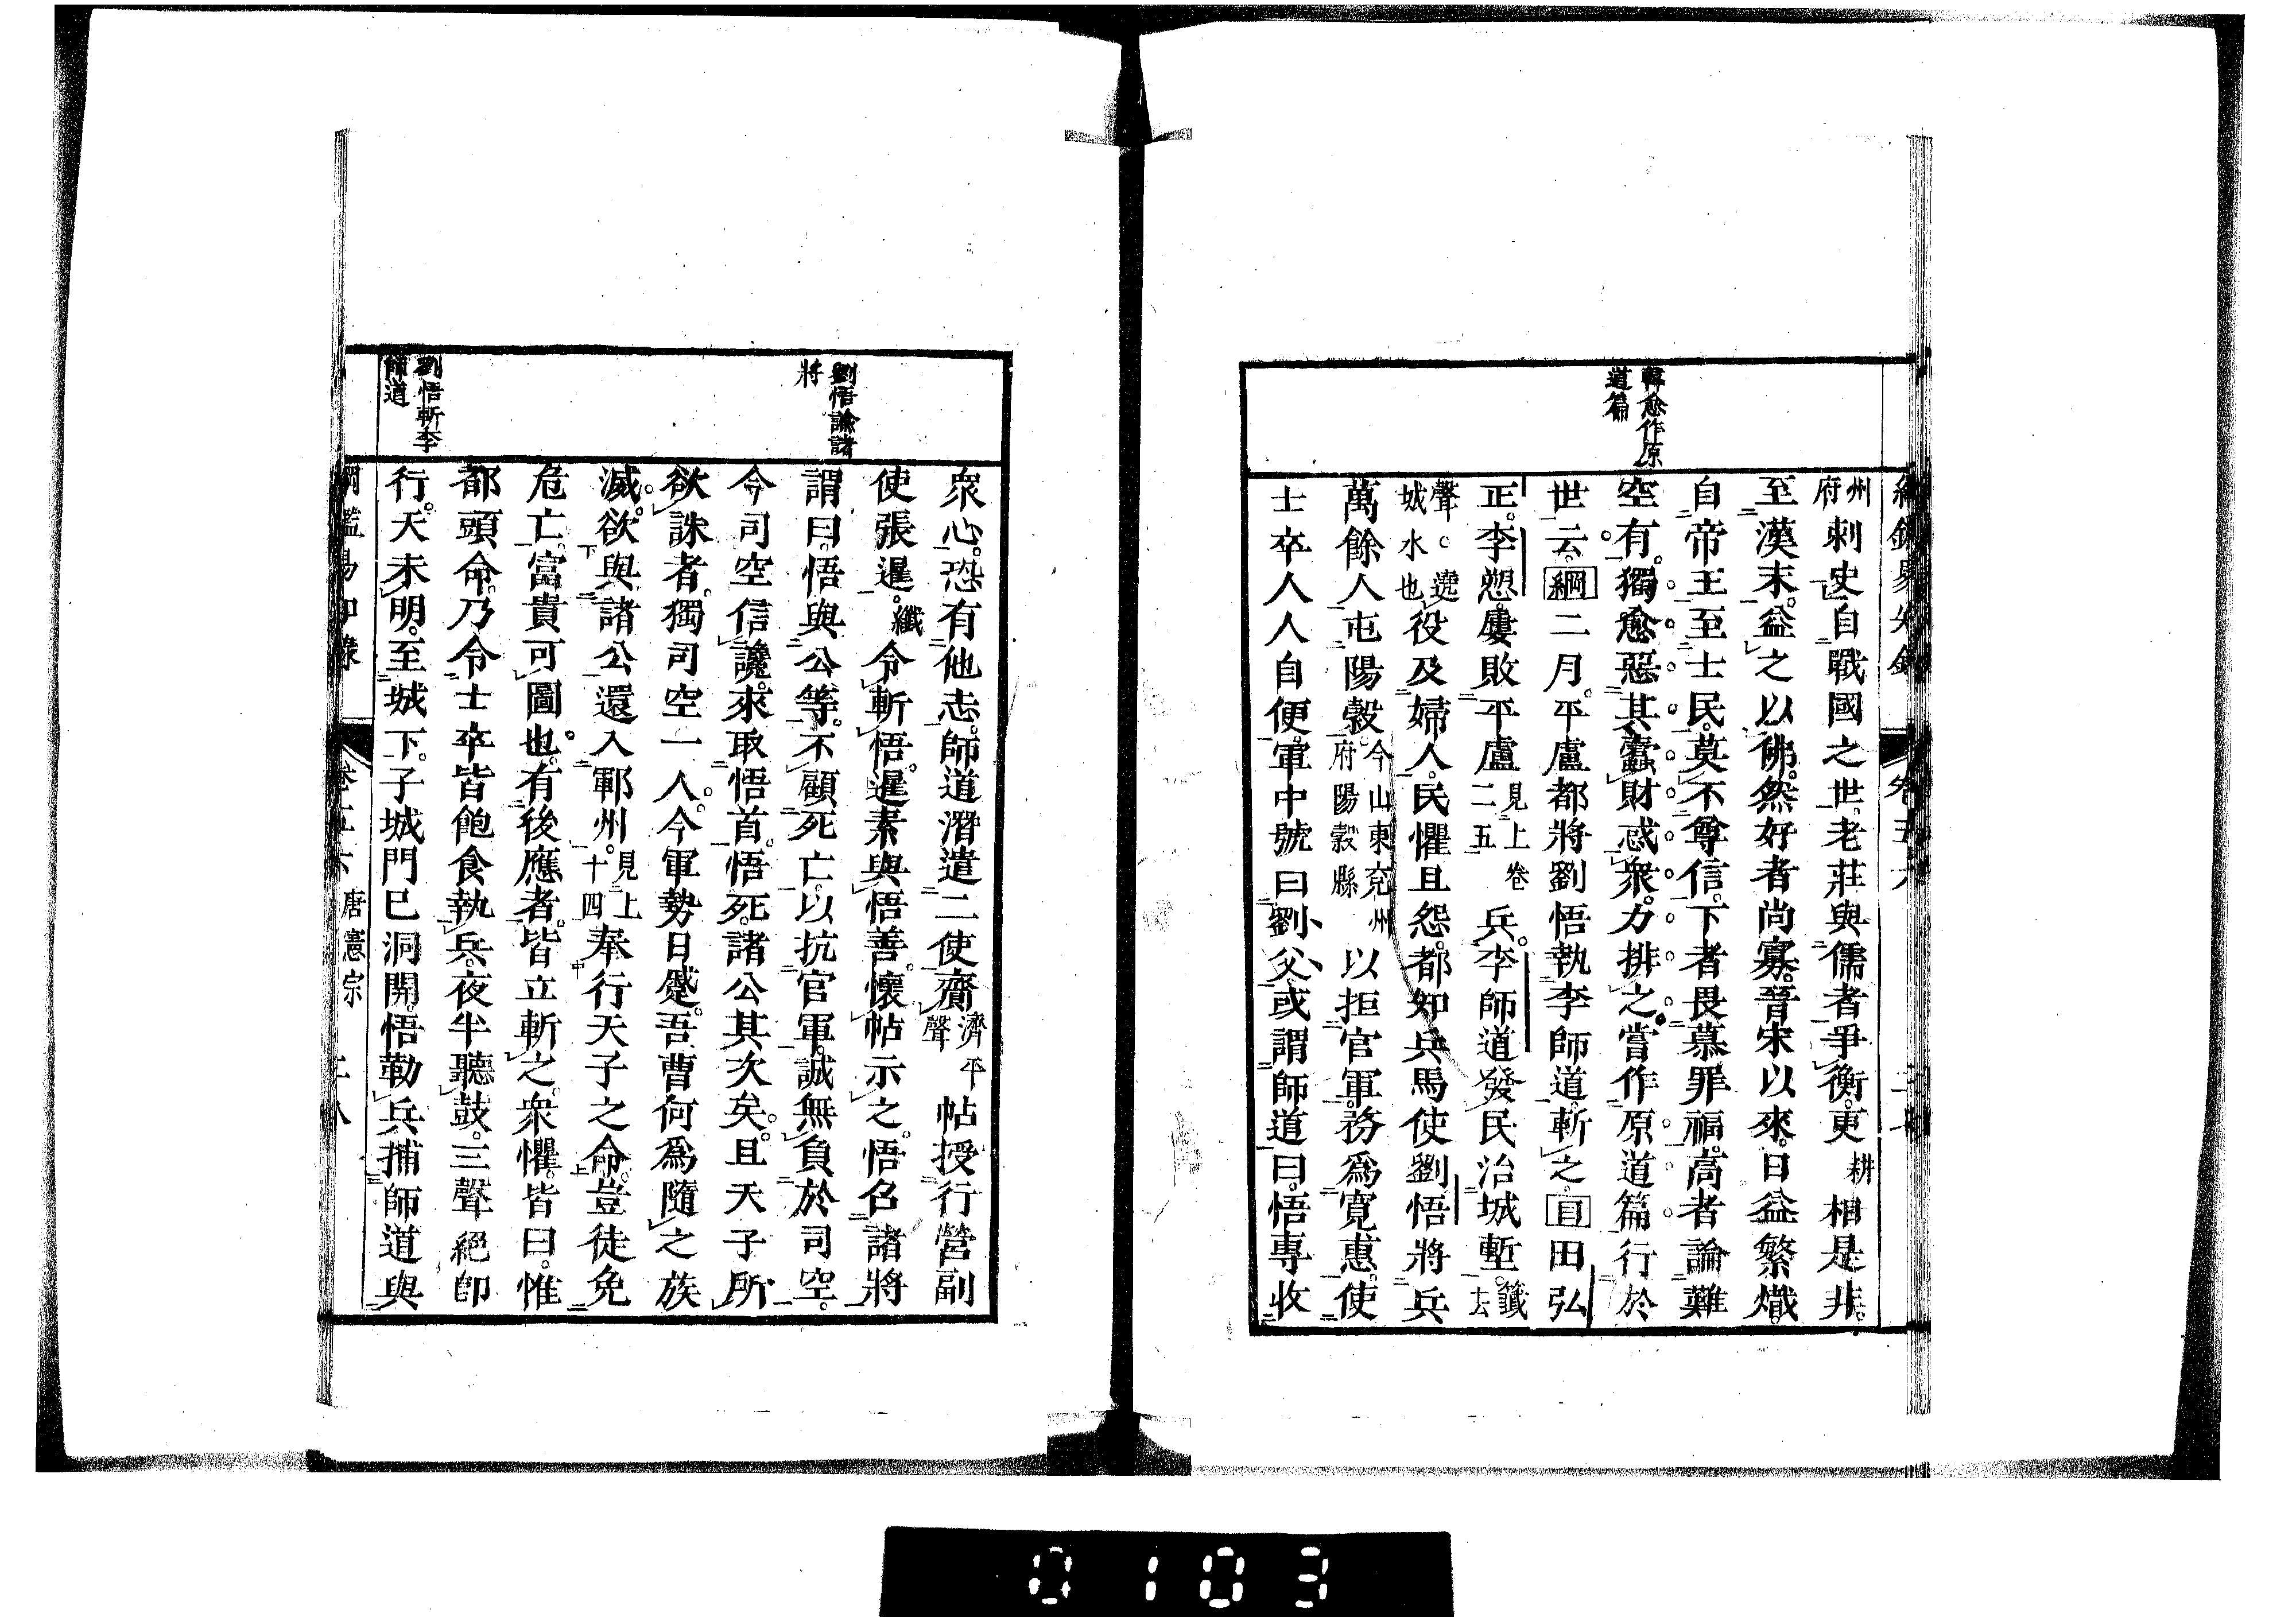 韓愈作原
道篇
州府刺史自戰國之世老莊與儒者爭衡更耕相是非
至漢末益之以佛然好者尚寡晉宋以來日益繁熾
自帝王至士民莫不尊信下者畏慕罪福高者論難
空有獨愈惡其蠹財惑衆力排之嘗作原道篇行於
世云綱二月平盧都將劉悟執李師道斬之目田弘
正李愬屢敗平盧見上卷二五兵李師道發民治城塹籤去
聲遶城水也役及婦人民懼且怨都知兵馬使劉悟將兵
萬餘人屯陽穀今山東兗州府陽穀縣以拒官軍務爲寬惠使
士卒人人自便軍中號曰劉父或謂師道曰悟專收
劉悟諭諸
將
劉悟斬李
師道
衆心恐有他志師道潛遣二使齎濟平聲帖授行營副
使張暹纖令斬悟暹素與悟善懷帖示之悟召諸將
謂曰悟與公等不顧死亡以抗官軍誠無負於司空
今司空信讒來取悟首悟死諸公其次矣且天子所
欲誅者獨司空一人今軍勢日蹙吾曹何爲隨之族
滅欲與諸公還入鄆州見上十四奉行天子之命豈徒免
危亡富貴可圖也有後應者皆立斬之衆懼皆曰惟
都頭命乃令士卒皆飽食執兵夜半聽鼓三聲絕卽
行天未明至城下子城門已洞開悟勒兵捕師道與
唐憲宗
0103